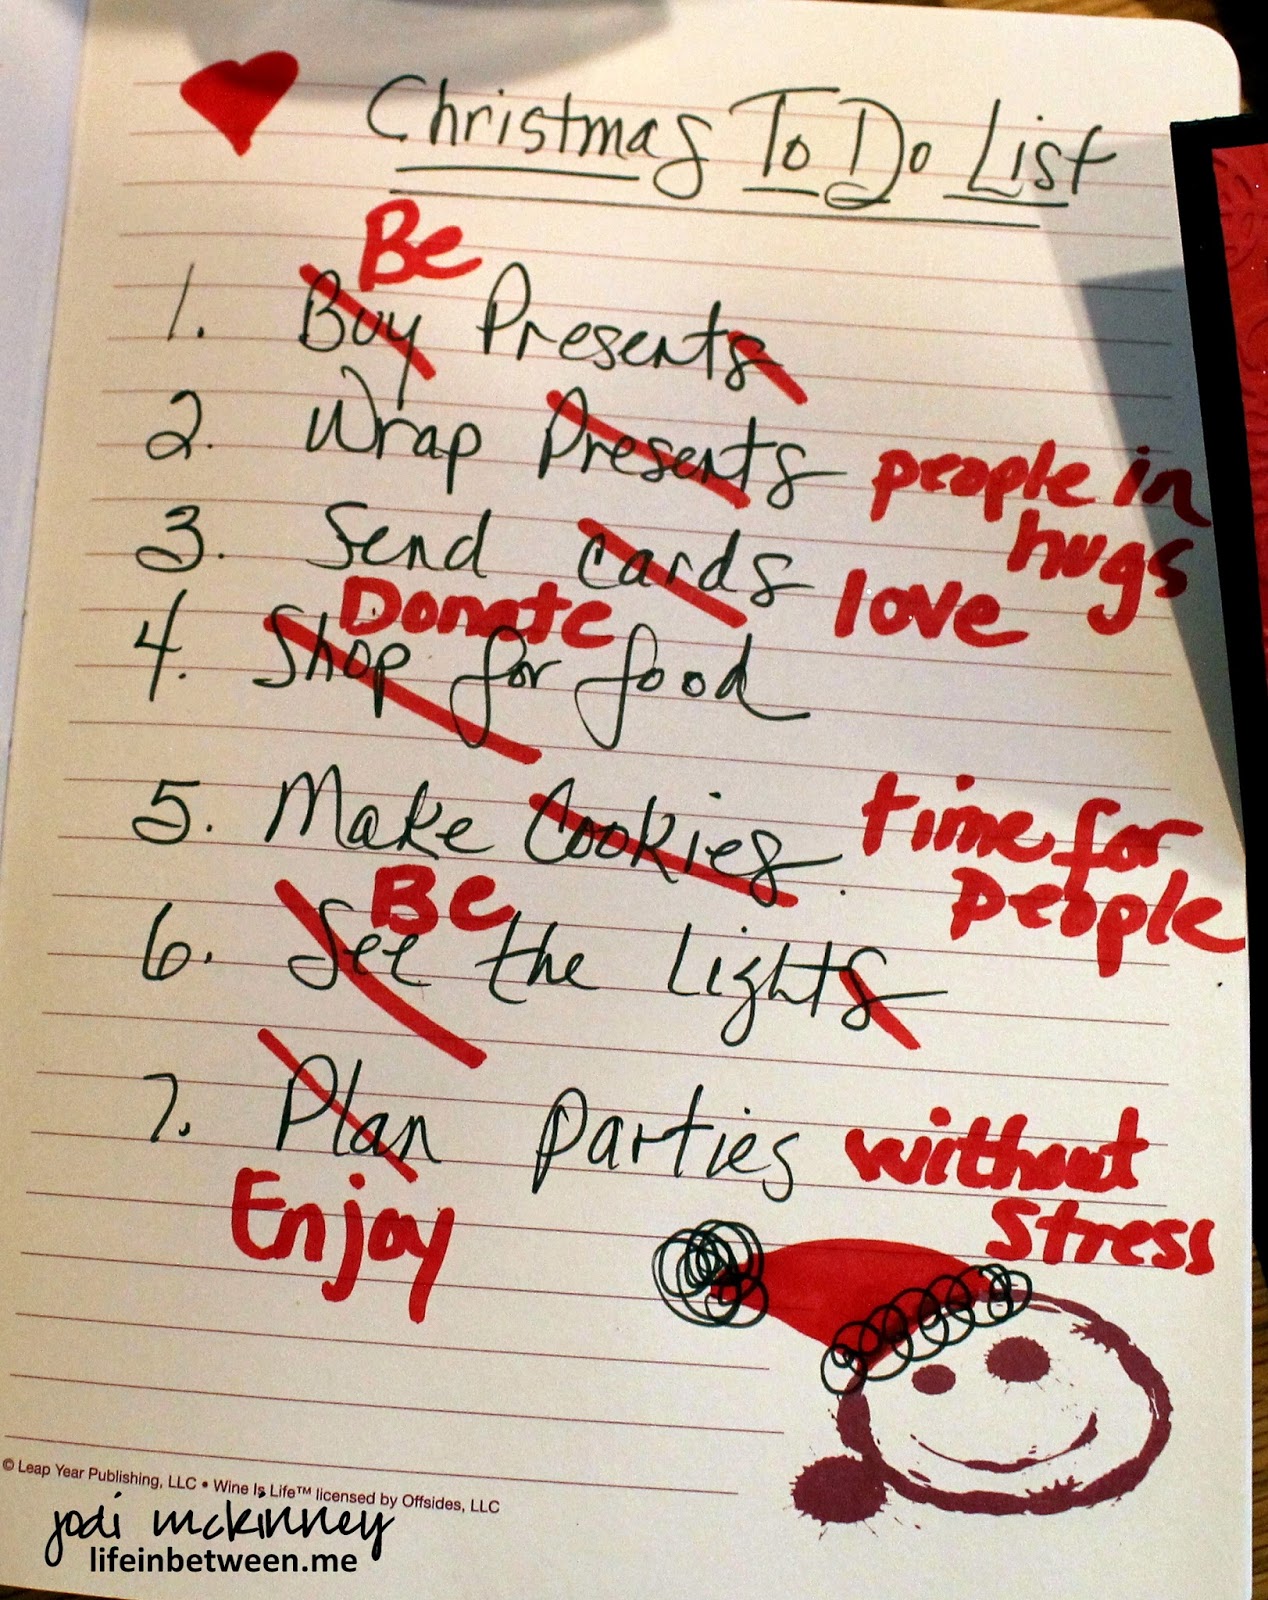 Christmas To Do List
Be
1. Buy Presents
2. Wrap Presents people in
hugs
3. Send cards love
Donate
4. Shop for food
5. Make Cookies. time for
people
Be
6. See the Lights
7. Plan parties without
stress
Enjoy
© Leap Year Publishing, LLC • Wine Is Life™ licensed by Offsides, LLC
jodi mckinney
lifeinbetween.me